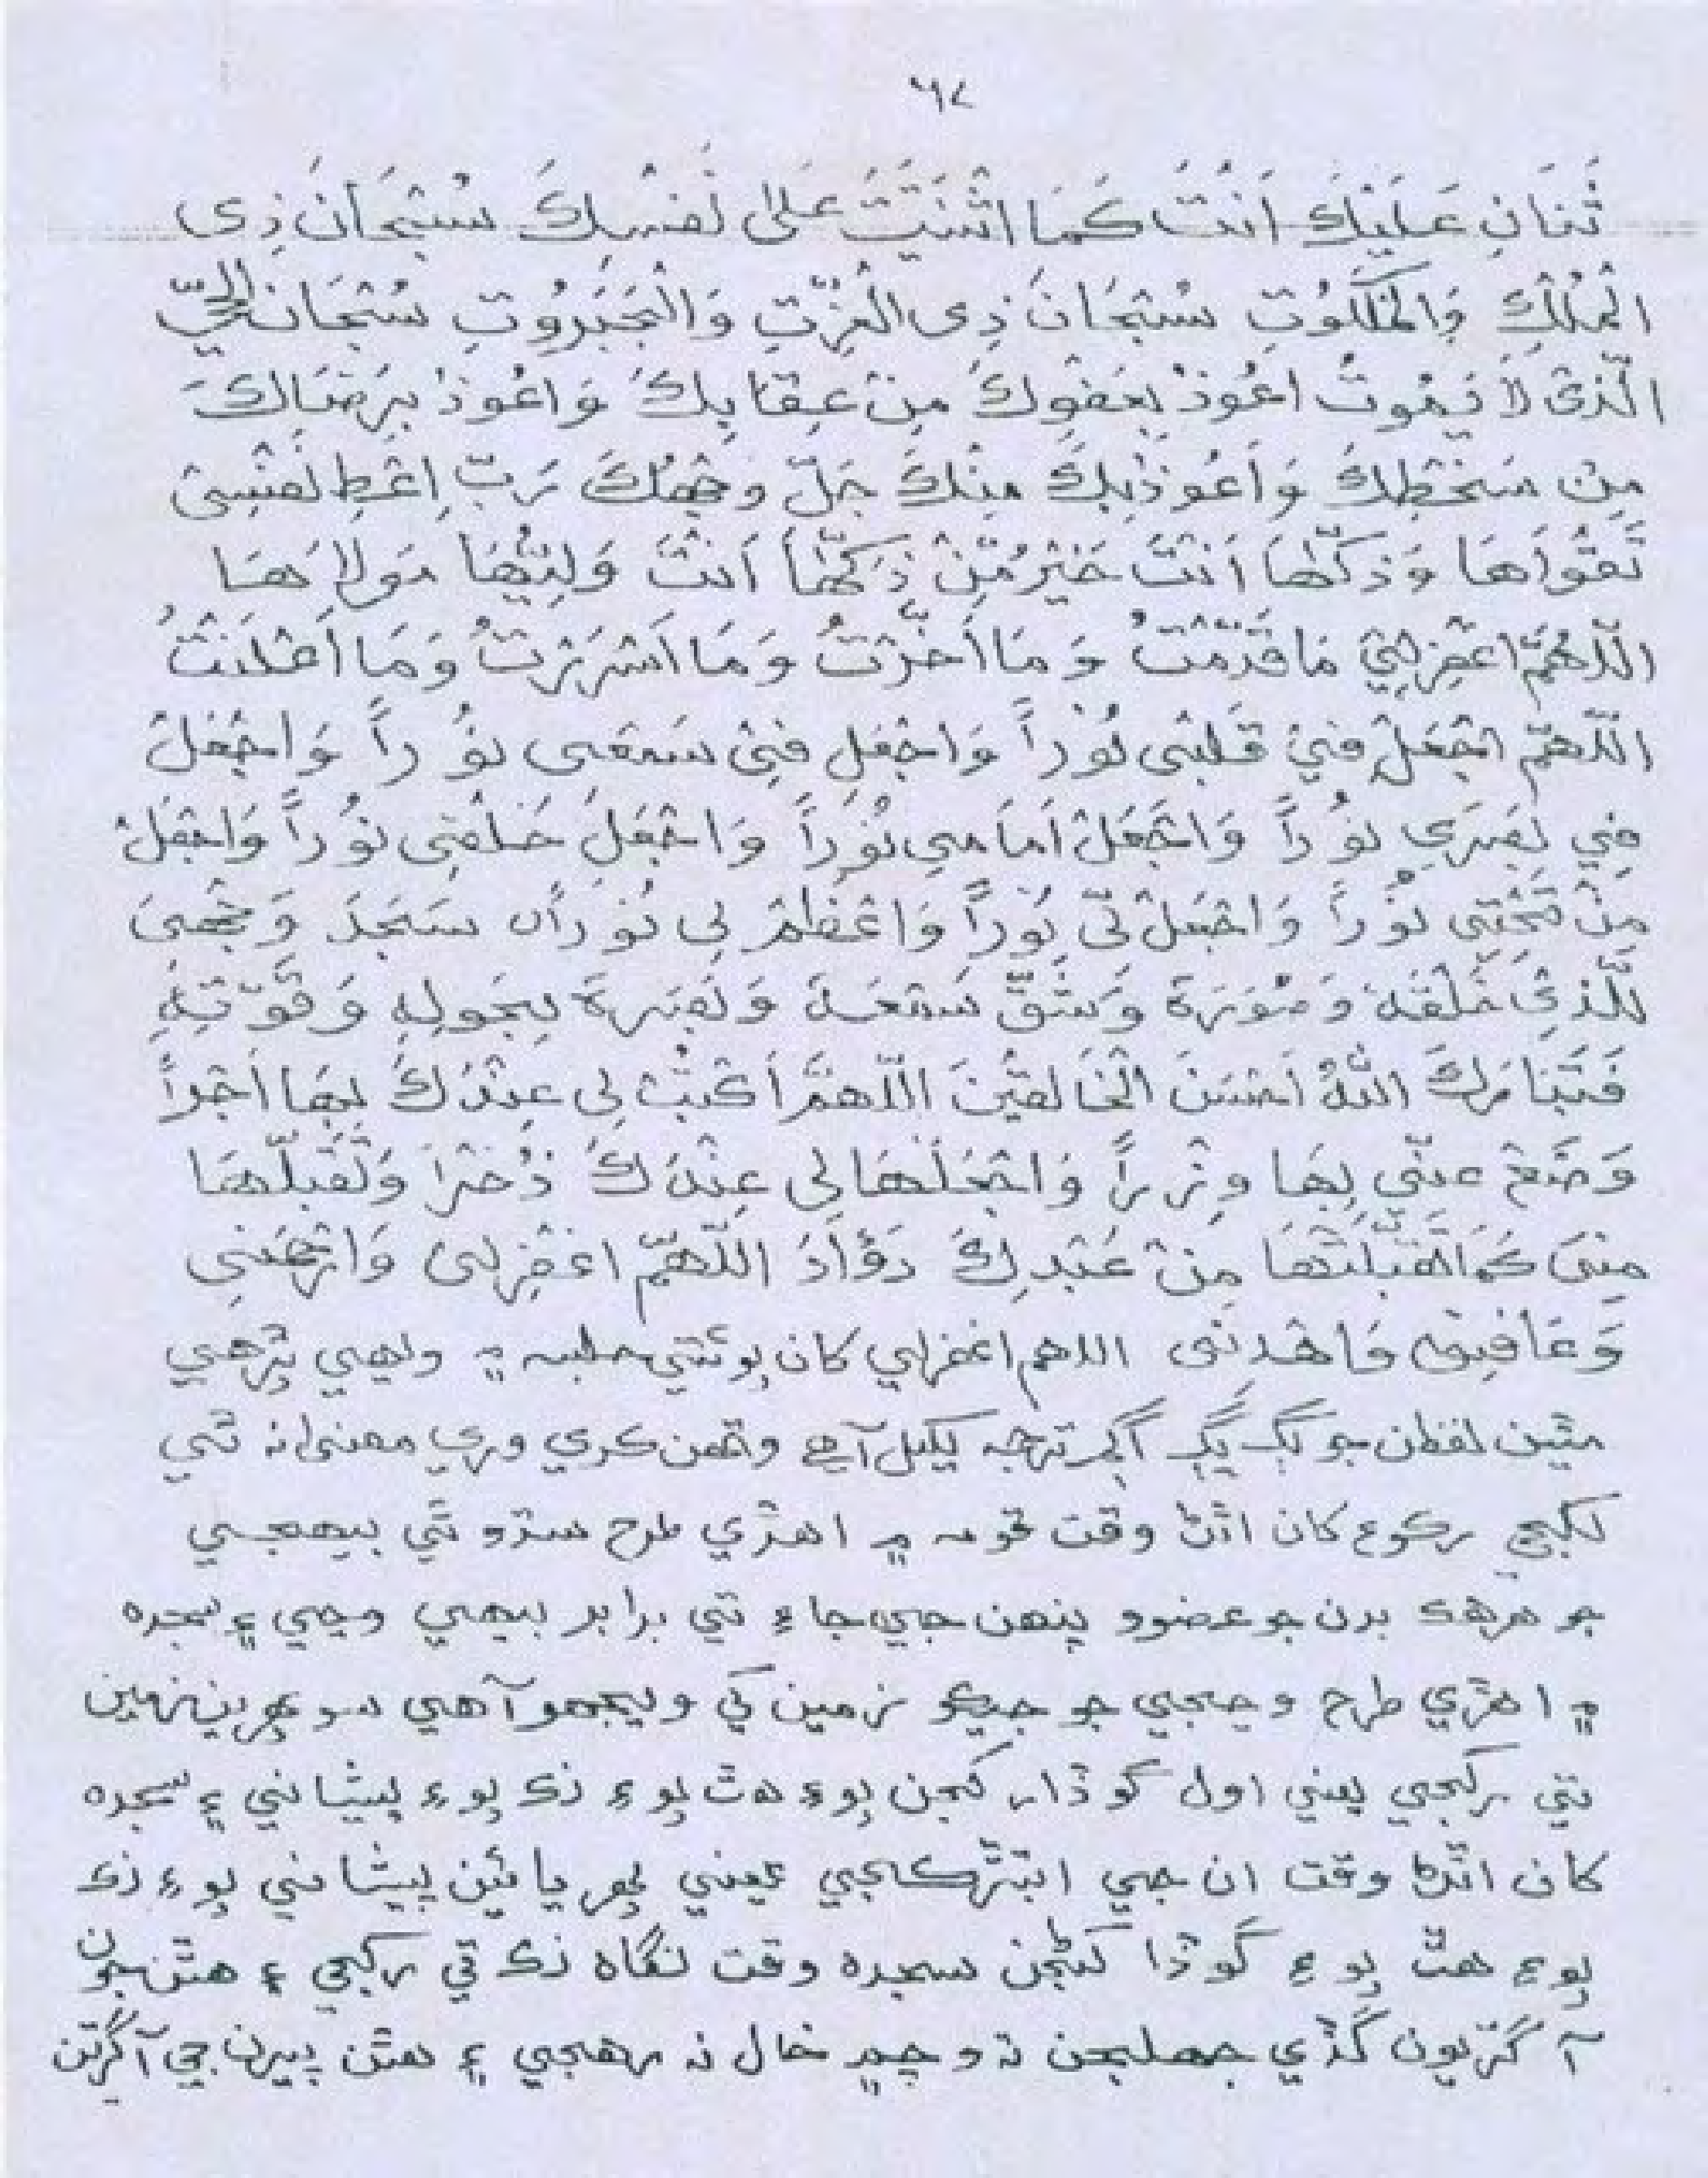 ٦٧
ثَنَانِ عَلَيْكَ اَنْتَ كَمَا اثْنَيْتَ عَلىٰ نَفْسِكَ سُبْحَانَ ذِی
الْمُلْكِ وَالْمَلَكُوْتِ سُبْحَانَ ذِی الْعِزّتِ وَالْجَبَرُوتِ سُبْحَانَ الحَيِّ
الَّذیْ لَا يَمُوتُ اعُوذُ بِعَفْوِكَ مِنْ عِقَابِكَ وَ اعُوذُ بِرَضَاكَ
مِنْ سَخَطِكَ وَ اَعُوذُبِكَ مِنْكَ جَلَّ وجْهُكَ رَبِّ اِعْطِ نَفْسِیْ
تَقْوَاهَا وَ ذَكِّهَا اَنْتَ خَيْرُ مَّنْ ذَكّٰهَا اَنْتَ وَلِيُّهَا مَولَاهَا
اللّٰهُمَّ اغْفِرْلِيْ مَا قَدَّمْتُ وَ مَا اَخَّرْتُ وَ مَا اَسْرَرْتُ وَمَا اَعْلَنْتُ
اللّٰهُمَّ اجْعَلْ فِيْ قَلْبِی نُوْراً وَاجْعَلِ فِیْ سَمْعِی نُوْراً وَاجْعَلْ
فِي بَصَرِي نُوْراً وَاجْعَلْ اَمَامِي نُوْراً وَاجْعَلْ خَلْفِی نُوْراً وَاجْعَلْ
مِنْ تَحْتِی نُوْراً وَاجْعَلْ لِّی نُوْراً وَاعْظِمْ لِی نُوْراً سَجَدَ وَجْهِیَ
لِلَّذِیْ خَلَقَهٗ وَ صَوَّرَهٗ وَشَقَّ سَمْعَهٗ وَ بَصَرَهٗ بِحَولِهٖ وَ قُوَّتِهٖ
فَتَبَارَكَ اللّٰهُ اَحْسَنَ الْخَالِقِيْنَ اللّٰهُمَّ اَكْتُبْ لِی عِنْدَكَ بِهَا اَجْراً
وَ ضَعْ عَنِّی بِهَا وِزْراً وَاجْعَلْهَا لِی عِنْدَكَ ذُخْراً وَتَقَبَّلْهَا
مِنِّیَ كَمَا تَقَبَّلْتَهَا مِنْ عَبْدِكَ دَؤاَدَ اللّٰهُمَّ اغْفِرْلِی وَارْحَمْنِی
وَعَافِنِی وَاهْدِنِی اللهم اغفرلي کان پوئتي جلسه ۾ ويهي پڙهي
مٿين لفظن جو اڳ ترجمو لکيل آهي وٿهن ڪري وري معنیٰ نه ٿي
لکجي رڪوع کان اٿڻ وقت قومه ۾ اهڙي طرح سڌو ٿي بيهجي
جو هرهڪ بدن جو عضوو پنهن جي جاءِ تي برابر بيهي وڃي ۽ سجده
۾ اهڙي طرح وڃجي جو جيڪو زمين کي ويجهو آهي سو پهرين زمين
تي رکجي يعني اول گوڏا رکجن پوءِ هٿ پوءِ نڪ پوءِ پيشاني ۽ سجده
کان اٿڻ وقت ان جي ابتڙ ڪجي يعني پهريائين پيشاني پوءِ نڪ
پوءِ هٿ پوءِ گوڏا کڻجن سجده وقت نگاه نڪ تي رکجي ۽ هٿن جون
آڱريون گڏي جهلجن ته وچ ۾ خال نه رهجي ۽ هٿن پيرن جي آڱرين